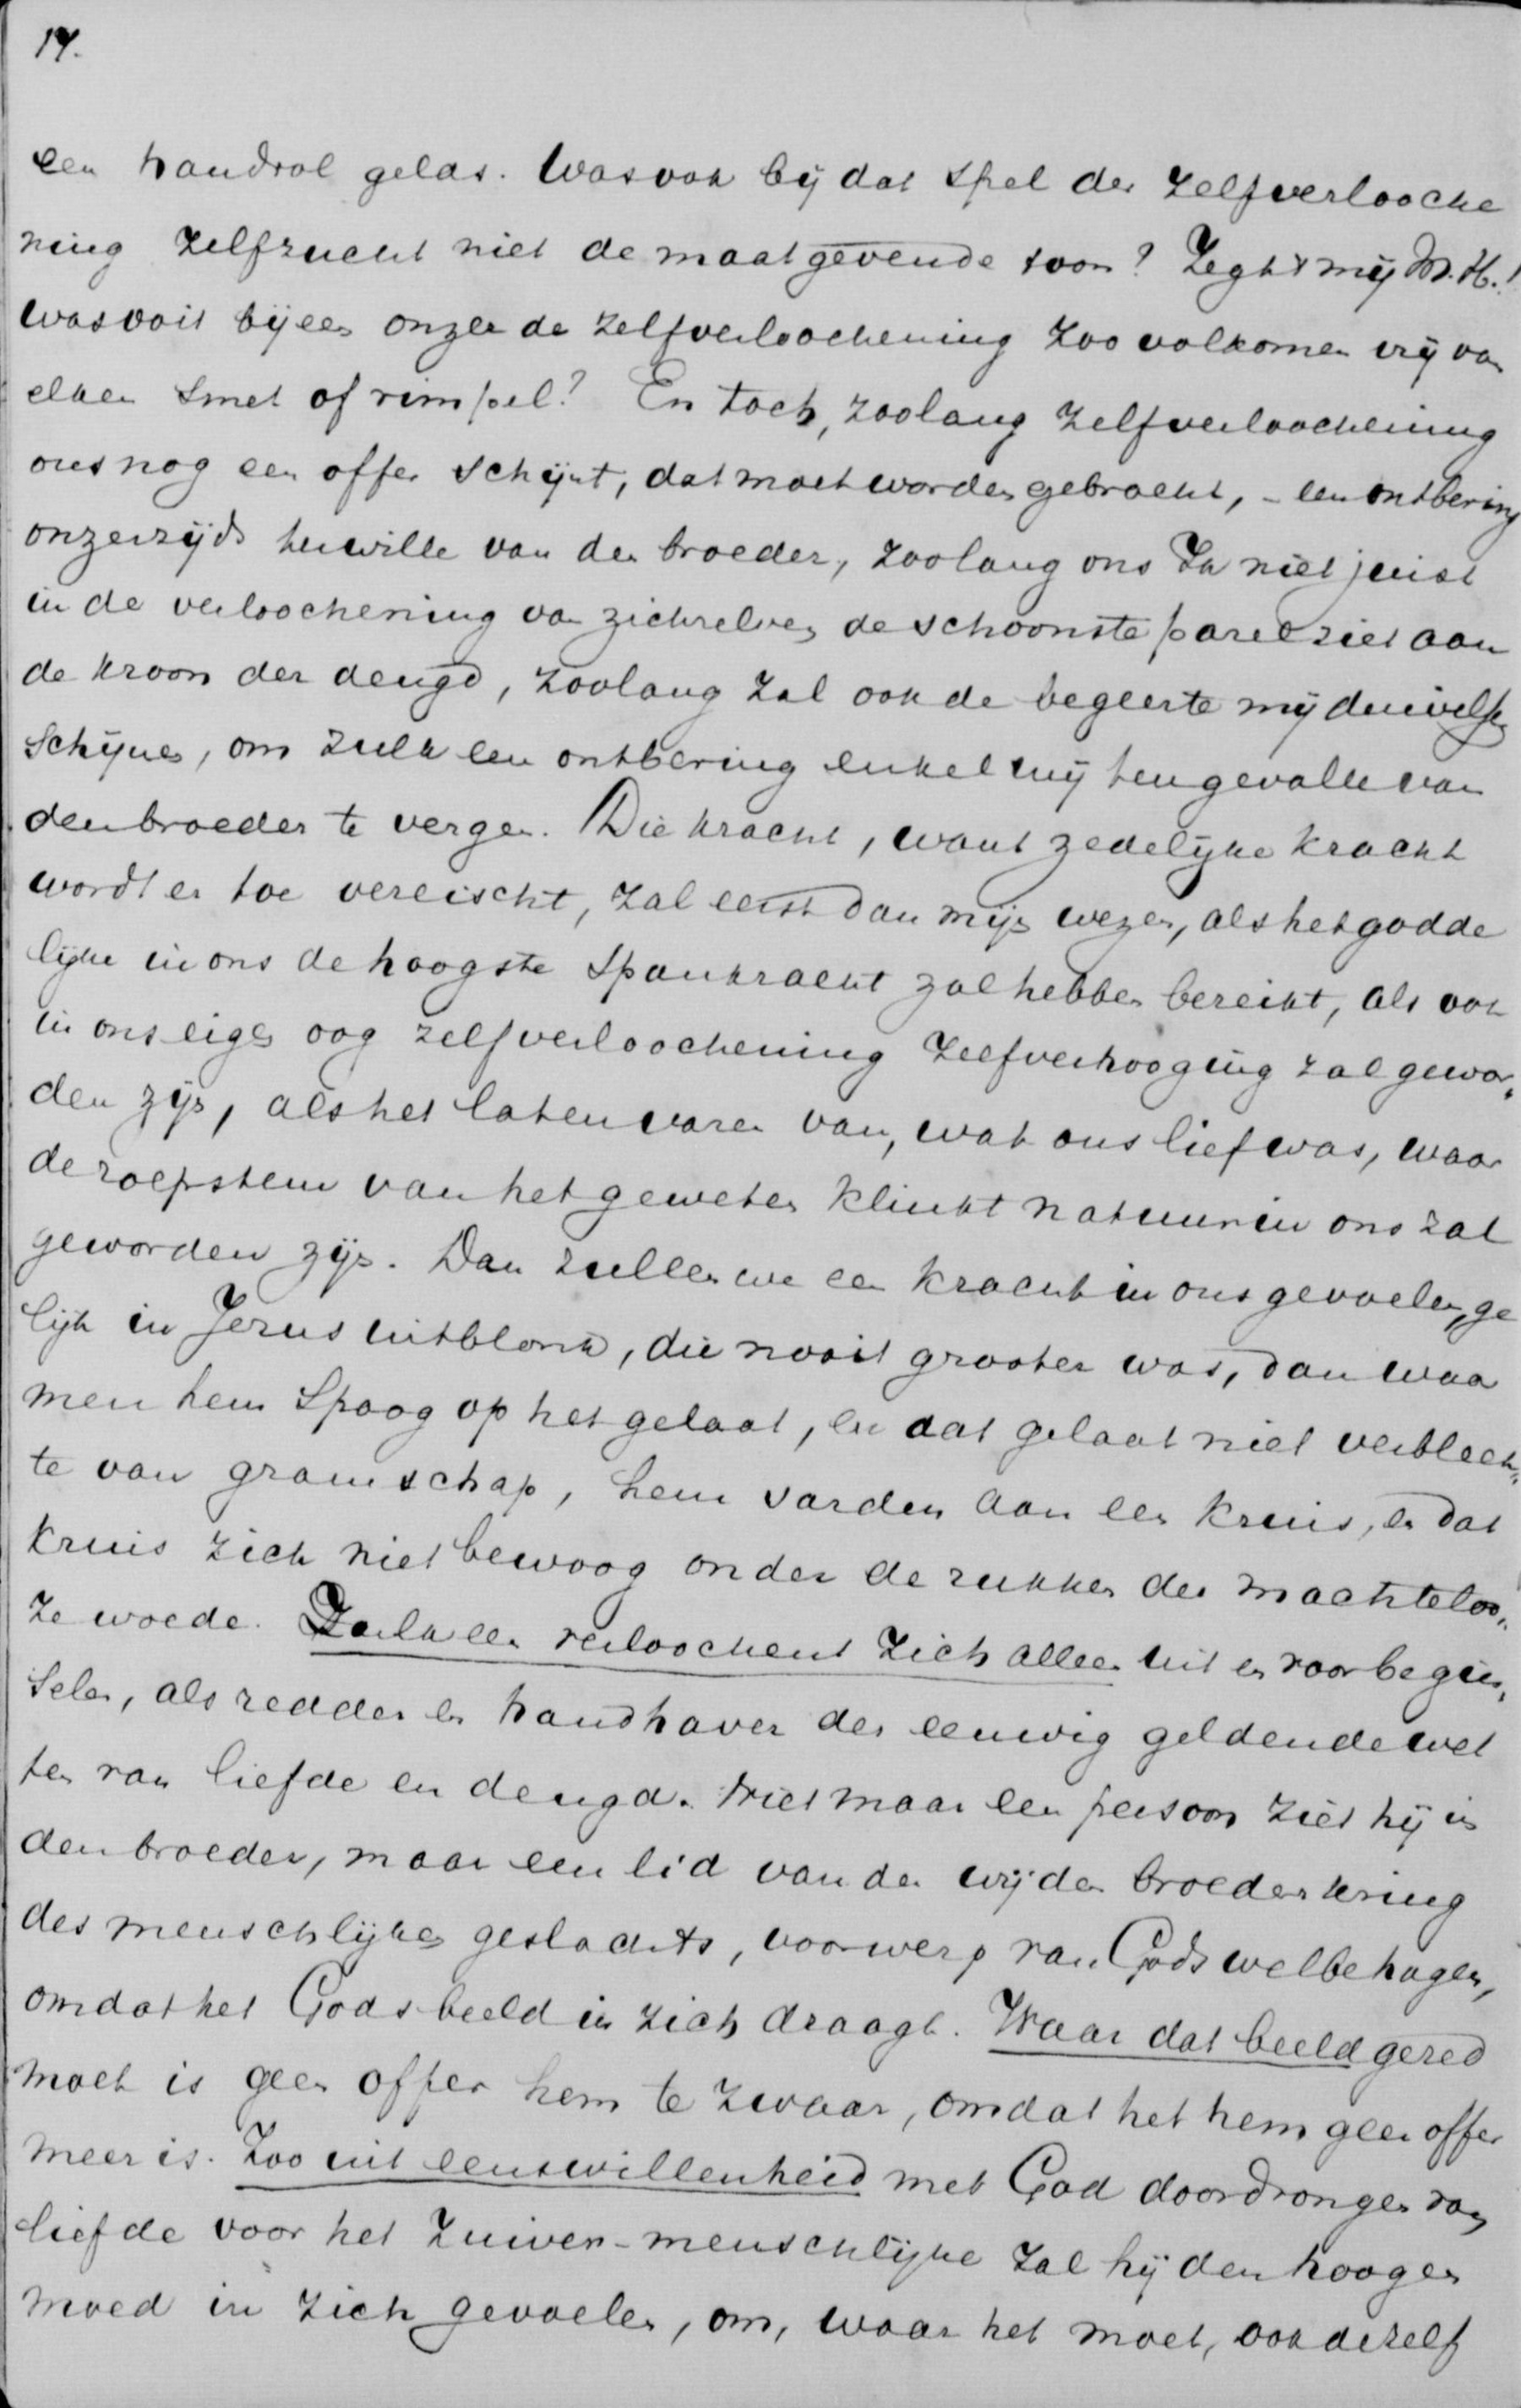 14.
een handvol gelds. Was ook bij dat spel der zelfverlooche
ning zelfzucht niet de maatgevende toon? Zegt mij M. H.!
was ooit bij een onzer de zelfverloochening zoo volkomen vrij van
elken smet of rimpel? En toch, zoolang zelfverloochening
ons nog een offer schijnt, dat moet worden gebracht, – een ontbering
onzerzijds terwille van den broeder, zoolang ons Ik niet juist
in de verloochening van zichzelven de schoonste parel ziet aan
de kroon der deugd, zoolang zal ook de begeerte mij duivelsch
schijnen, om zulk een ontbering enkel mij ten gevalle van
den broeder te vergen. Die kracht, want zedelijke kracht
wordt er toe vereischt, zal eerst dan mijn wezen, als het godde
lijke in ons de hoogste spankracht zal hebben bereikt, als ook
in ons eigen oog zelfverloochening zelfverhooging zal gewor„
den zijn, als het laten varen van, wat ons lief was, waar
de roepstem van het geweten klinkt natuur in ons zal
geworden zijn. Dan zullen we een kracht in ons gevoelen, ge
lijk in Jezus uitblonk, die nooit grooter was, dan waar
men hem spoog op het gelaat, en dat gelaat niet verbleek„
te van gramschap, hem sarden aan een kruis, en dat
kruis zich niet bewoog onder de rukken der machteloo„
ze woede. Zulk een verloochent zich alleen uit en voor begin„
selen, als redder en handhaver der eeuwig geldende wet
ten van liefde en deugd. Niet maar een persoon ziet hij in
den broeder, maar een lid van den wijden broederkring
des menschlijken geslachts, voorwerp van Gods welbehagen,
omdat het Gods beeld in zich draagt. Waar dat beeld gered
moet is geen offer hem te zwaar, omdat het hem geen offer
meer is. Zoo uit eenswillenheid met God doordrongen van
liefde voor het zuiver-menschlijke zal hij den hoogen
moed in zich gevoelen, om, waar het moet, ook dezelf